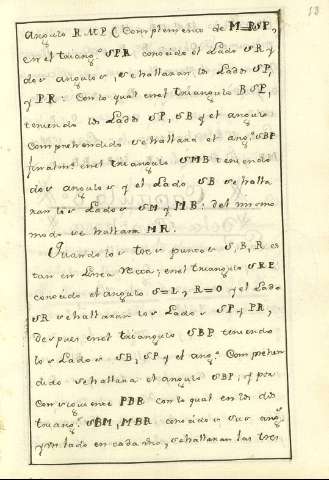 13
angulo RMP (Complemento de MRSP,
en el triang.º SPR conocido el Lado SR y
dos angulos, se hallaran los Lados SP,
y PR: Con lo qual en el triangulo BSP,
teniendo los Lados SP, SB y el angulo
Comprehendido se hallará el ang.º SBP
finalm.te en el triangulo SMB teniendo
dos angulos y el Lado SB se halla
ran los Lados SM y MB: del mismo
modo se hallara MR.
Quando los tres puntos S, B, R es
tan en Linea recta; en el triangulo SRP
conocido el angulo S=L, R=O y el Lado
SR se hallaran los Lados SP y PR,
despues en el triangulo SBP teniendo
los Lados SB, SP y el ang.º Comprehen
dido se hallara el angulo SBP; y por
Consiguiente PBR con lo qual en los dos
triang.s SBM, MBR conocidos sus ang.s
y un lado en cada uno, se hallaran las tres